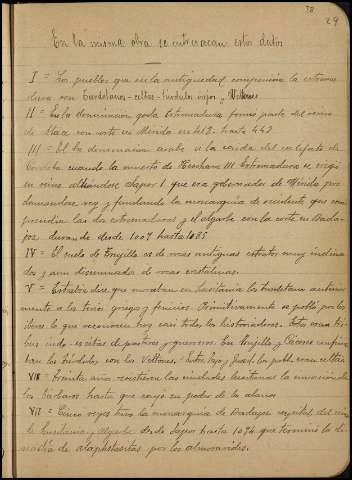 29
En la misma obra se entresacan estos datos
I = Los pueblos que en la antigüedad componian la extrema
dura son Turdetanos - celtas - turdulos  y Vettones
II = En la dominacion goda Extremadura formo parte del reino
de con corte en Mérida en hasta 442.
III = En la denominacion arabe a la caida del califato de
Cordoba cuando la muerte de Hescham III Extremadura se erigió
en reino Sapor 1 que era gobernador de Mérida pro
clamandose rey y fundando la monarquia de occidente que com
prendia las dos extremaduras y el algarbe con la corte en Bada
joz durando desde 1009 hasta 1085.
IV = El suelo de Trujillo es de rocas antiguas estratos muy inclina
dos y aun diseminada de rocas cristalinas.
V = Estrabon dice que moraban en Lusitania los turdetani anterior
mente a los tirios griegos y fenicios. Primitivamente se pobló por los
iberos lo que reconocen hoy casi todos los historiadores. Estas eran tri
bus indo-escitas de pastores y guerreros. En Trujillo y Cáceres confina
ban los túrdulos con los Vettones. Entre Tajo y Guad. la pobl. eran celtas
VI = Treinta años resistieron las ciudades lusitanas la invasion de
los bárbaros hasta que cayo en poder de los alanos
VII = Cinco reyes tuvo la monarquia de Badajoz reyetes del reino
de Lusitania y Algarbe desde Sapor hasta 1094 que terminó la di
nastia de  por los almoravides.